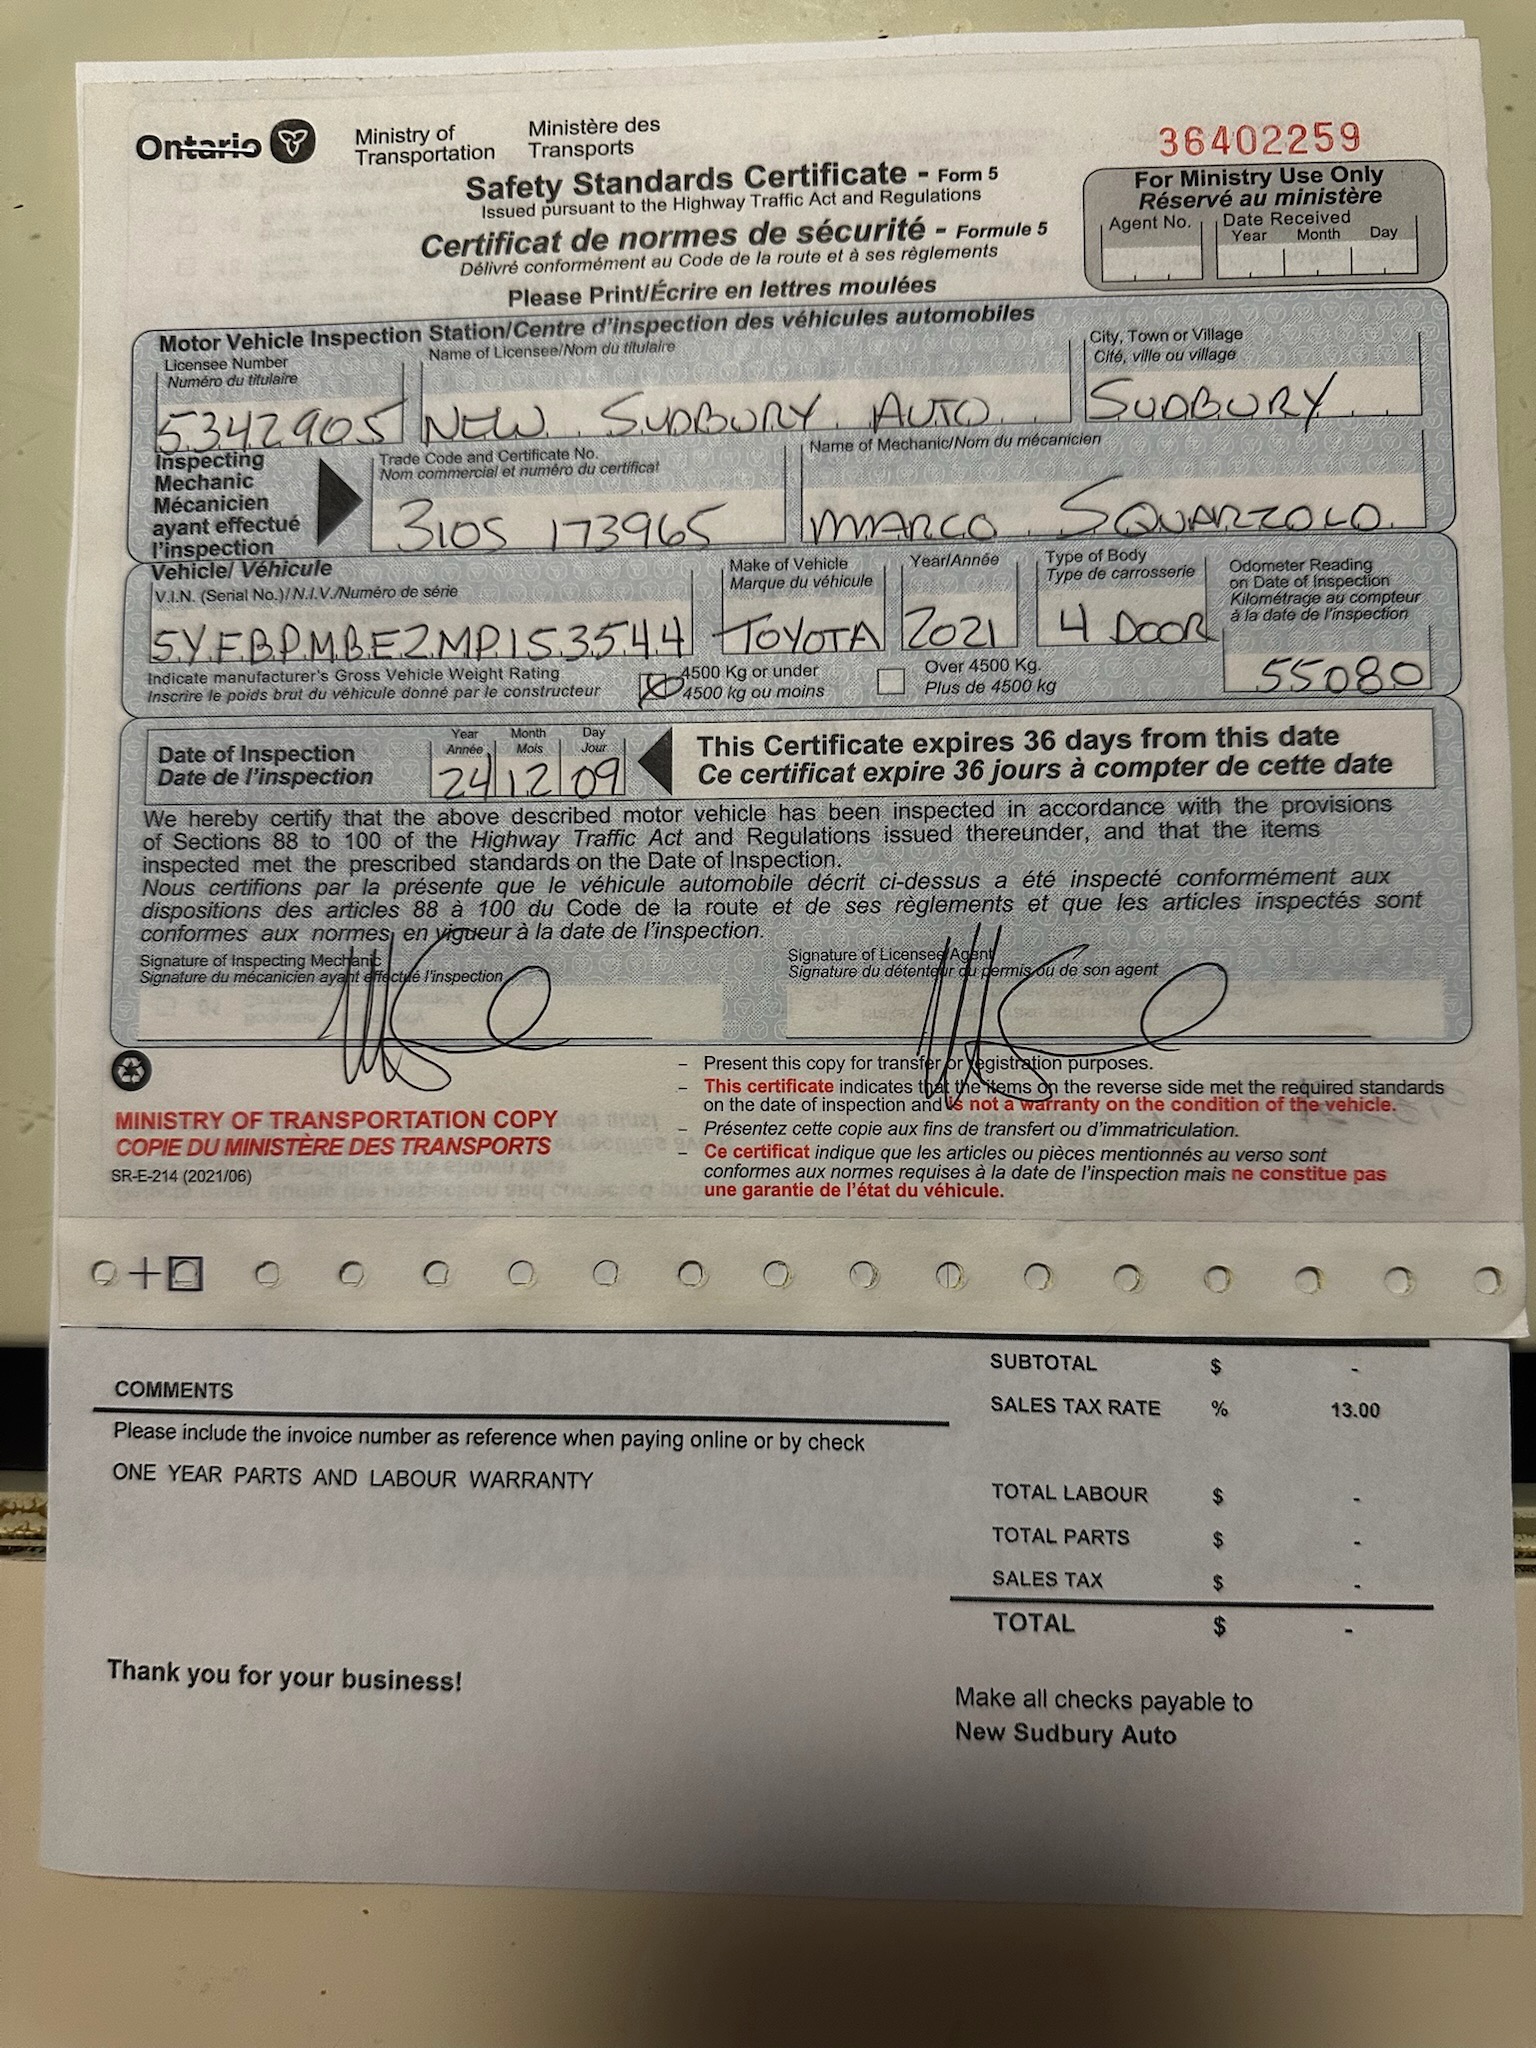 Ontario
Ministry of
Transportation
Ministère des
Transports
36402259
Safety Standards Certificate - Form 5
Issued pursuant to the Highway Traffic Act and Regulations
Certificat de normes de sécurité - Formule 5
Délivré conformément au Code de la route et à ses règlements
Please Print/Écrire en lettres moulées
For Ministry Use Only
Réservé au ministère
Agent No.
Date Received
Year Month Day
Motor Vehicle Inspection Station/Centre d'inspection des véhicules automobiles
Licensee Number
Numéro du titulaire
5342905
Name of Licensee/Nom du titulaire
NEW SUDBURY AUTO
City, Town or Village
Cité, ville ou village
SUDBURY
Inspecting
Mechanic
Mécanicien
ayant effectué
l'inspection
Trade Code and Certificate No.
Nom commercial et numéro du certificat
310S 173965
Name of Mechanic/Nom du mécanicien
MARCO SQUARZOLO
Vehicle/ Véhicule
V.I.N. (Serial No.)/N.I.V./Numéro de série
5YFBPMBE2MP153544
Make of Vehicle
Marque du véhicule
TOYOTA
Year/Année
2021
Type of Body
Type de carrosserie
4 DOOR
Odometer Reading
on Date of Inspection
Kilométrage au compteur
à la date de l'inspection
55080
Indicate manufacturer's Gross Vehicle Weight Rating
Inscrire le poids brut du véhicule donné par le constructeur
4500 Kg or under
4500 kg ou moins
Over 4500 Kg.
Plus de 4500 kg
Date of Inspection
Date de l'inspection
Year Month Day
Année Mois Jour
24 12 09
This Certificate expires 36 days from this date
Ce certificat expire 36 jours à compter de cette date
We hereby certify that the above described motor vehicle has been inspected in accordance with the provisions
of Sections 88 to 100 of the Highway Traffic Act and Regulations issued thereunder, and that the items
inspected met the prescribed standards on the Date of Inspection.
Nous certifions par la présente que le véhicule automobile décrit ci-dessus a été inspecté conformément aux
dispositions des articles 88 à 100 du Code de la route et de ses règlements et que les articles inspectés sont
conformes aux normes en vigueur à la date de l'inspection.
Signature of Inspecting Mechanic
Signature du mécanicien ayant effectué l'inspection
Signature of Licensee/Agent
Signature du détenteur du permis ou de son agent
MINISTRY OF TRANSPORTATION COPY
COPIE DU MINISTÈRE DES TRANSPORTS
SR-E-214 (2021/06)
– Present this copy for transfer or registration purposes.
– This certificate indicates that the items on the reverse side met the required standards
on the date of inspection and is not a warranty on the condition of the vehicle.
– Présentez cette copie aux fins de transfert ou d'immatriculation.
– Ce certificat indique que les articles ou pièces mentionnés au verso sont
conformes aux normes requises à la date de l'inspection mais ne constitue pas
une garantie de l'état du véhicule.
SUBTOTAL $ -
COMMENTS
SALES TAX RATE % 13.00
Please include the invoice number as reference when paying online or by check
ONE YEAR PARTS AND LABOUR WARRANTY
TOTAL LABOUR $ -
TOTAL PARTS $ -
SALES TAX $ -
TOTAL $ -
Thank you for your business!
Make all checks payable to
New Sudbury Auto